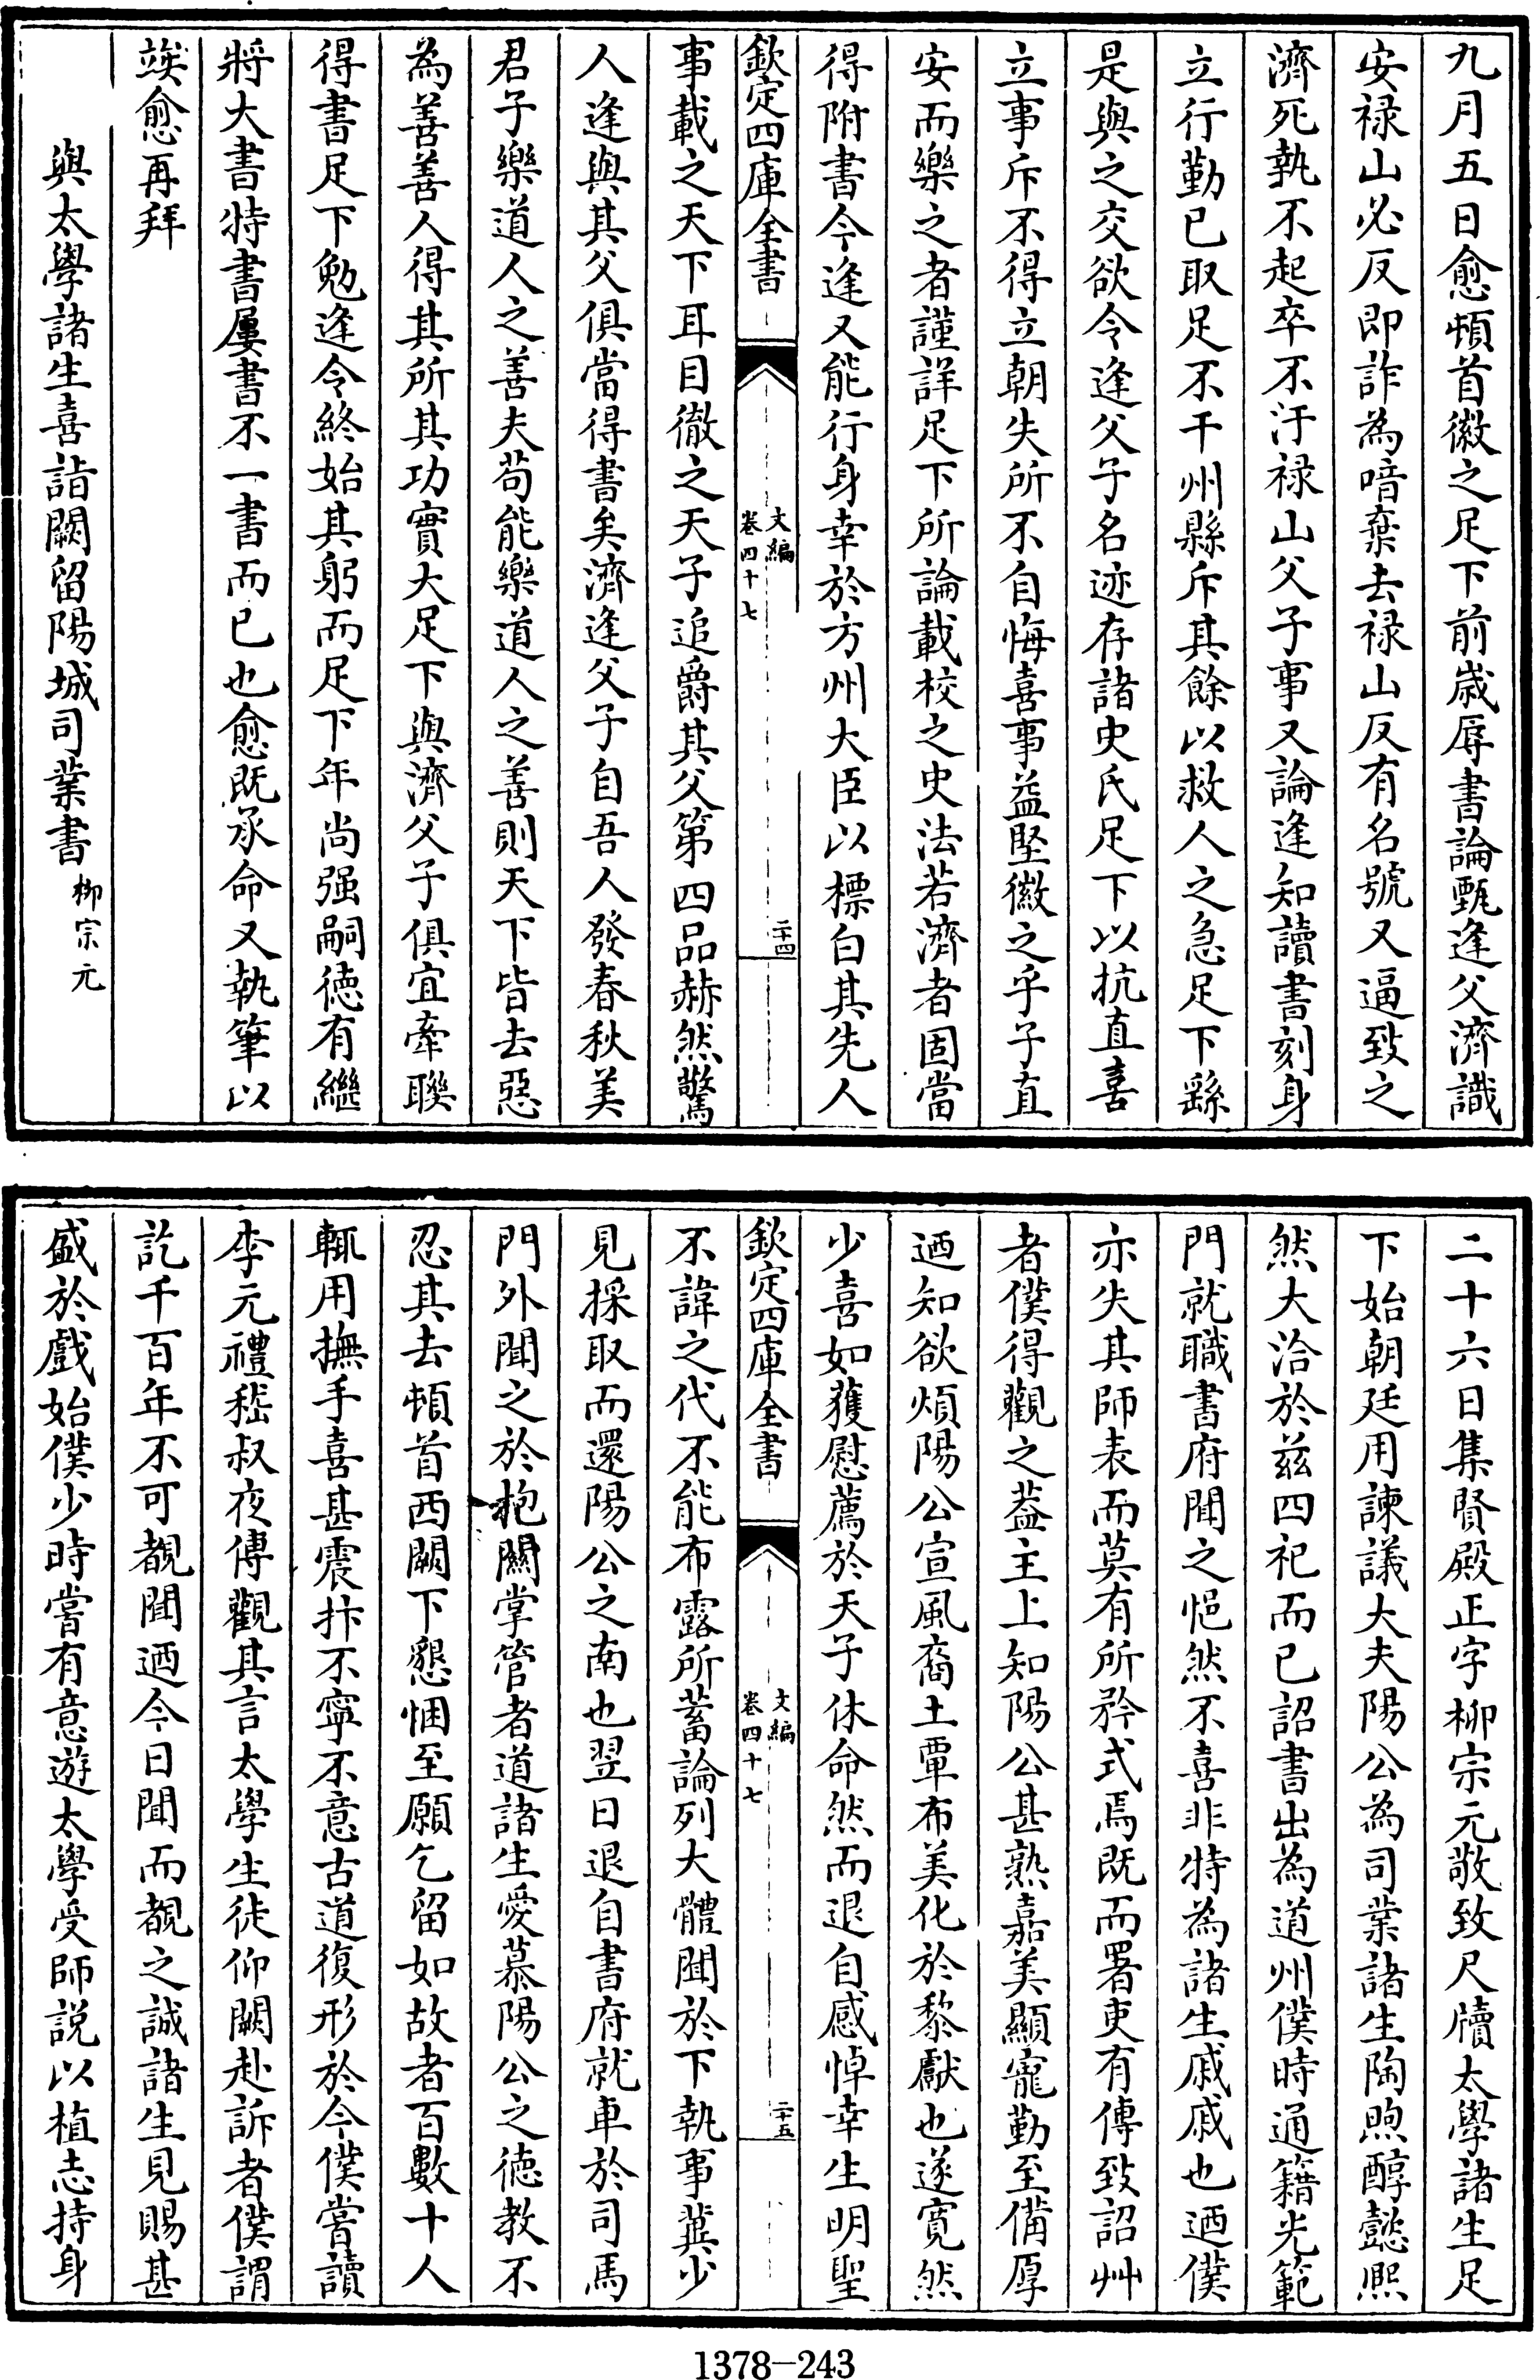 九月五日愈頓首微之足下前歲辱書論甄逢父濟識
安禄山必反即詐為喑棄去禄山反有名號又逼致之
濟死執不起卒不汙禄山父子事又論逢知讀書刻身
立行勤已取足不干州縣斥其餘以救人之急足下繇
是與之交欲令逢父子名迹存諸史氏足下以抗直喜
立事斥不得立朝失所不自悔喜事益堅微之乎子直
安而樂之者謹詳足下所論載校之史法若濟者固當
得附書今逢又能行身幸於方州大臣以標白其先人
欽定四庫全書
文編
卷四十七
二十四
事載之天下耳目徹之天子追爵其父第四品赫然驚
人逢與其父俱當得書矣濟逢父子自吾人發春秋美
君子樂道人之善夫苟能樂道人之善則天下皆去惡
為善善人得其所其功實大足下與濟父子俱宜牽聯
得書足下勉逢令終始其躬而足下年尚强嗣德有繼
將大書特書屢書不一書而已也愈既承命又執筆以
竢愈再拜
與太學諸生喜詣闕留陽城司業書 柳宗元
二十六日集賢殿正字柳宗元敬致尺牘太學諸生足
下始朝廷用諫議大夫陽公為司業諸生陶煦醇懿熙
然大洽於兹四祀而已詔書出為道州僕時通籍光範
門就職書府聞之悒然不喜非特為諸生戚戚也迺僕
亦失其師表而莫有所矜式焉既而署吏有傳致詔艸
者僕得觀之葢主上知陽公甚熟嘉美顯寵勤至備厚
迺知欲煩陽公宣風裔土覃布美化於黎獻也遂寛然
少喜如獲慰薦於天子休命然而退自感悼幸生明聖
欽定四庫全書
文編
卷四十七
二十五
不諱之代不能布露所蓄論列大體聞於下執事冀少
見採取而還陽公之南也翌日退自書府就車於司馬
門外聞之於抱關掌管者道諸生愛慕陽公之德教不
忍其去頓首西闕下懇悃至願乞留如故者百數十人
輒用撫手喜甚震抃不寧不意古道復形於今僕嘗讀
李元禮嵇叔夜傳觀其言太學生徒仰闕赴訴者僕謂
訖千百年不可覩聞迺今日聞而覩之誠諸生見賜甚
盛於戲始僕少時嘗有意遊太學受師説以植志持身
1378-243